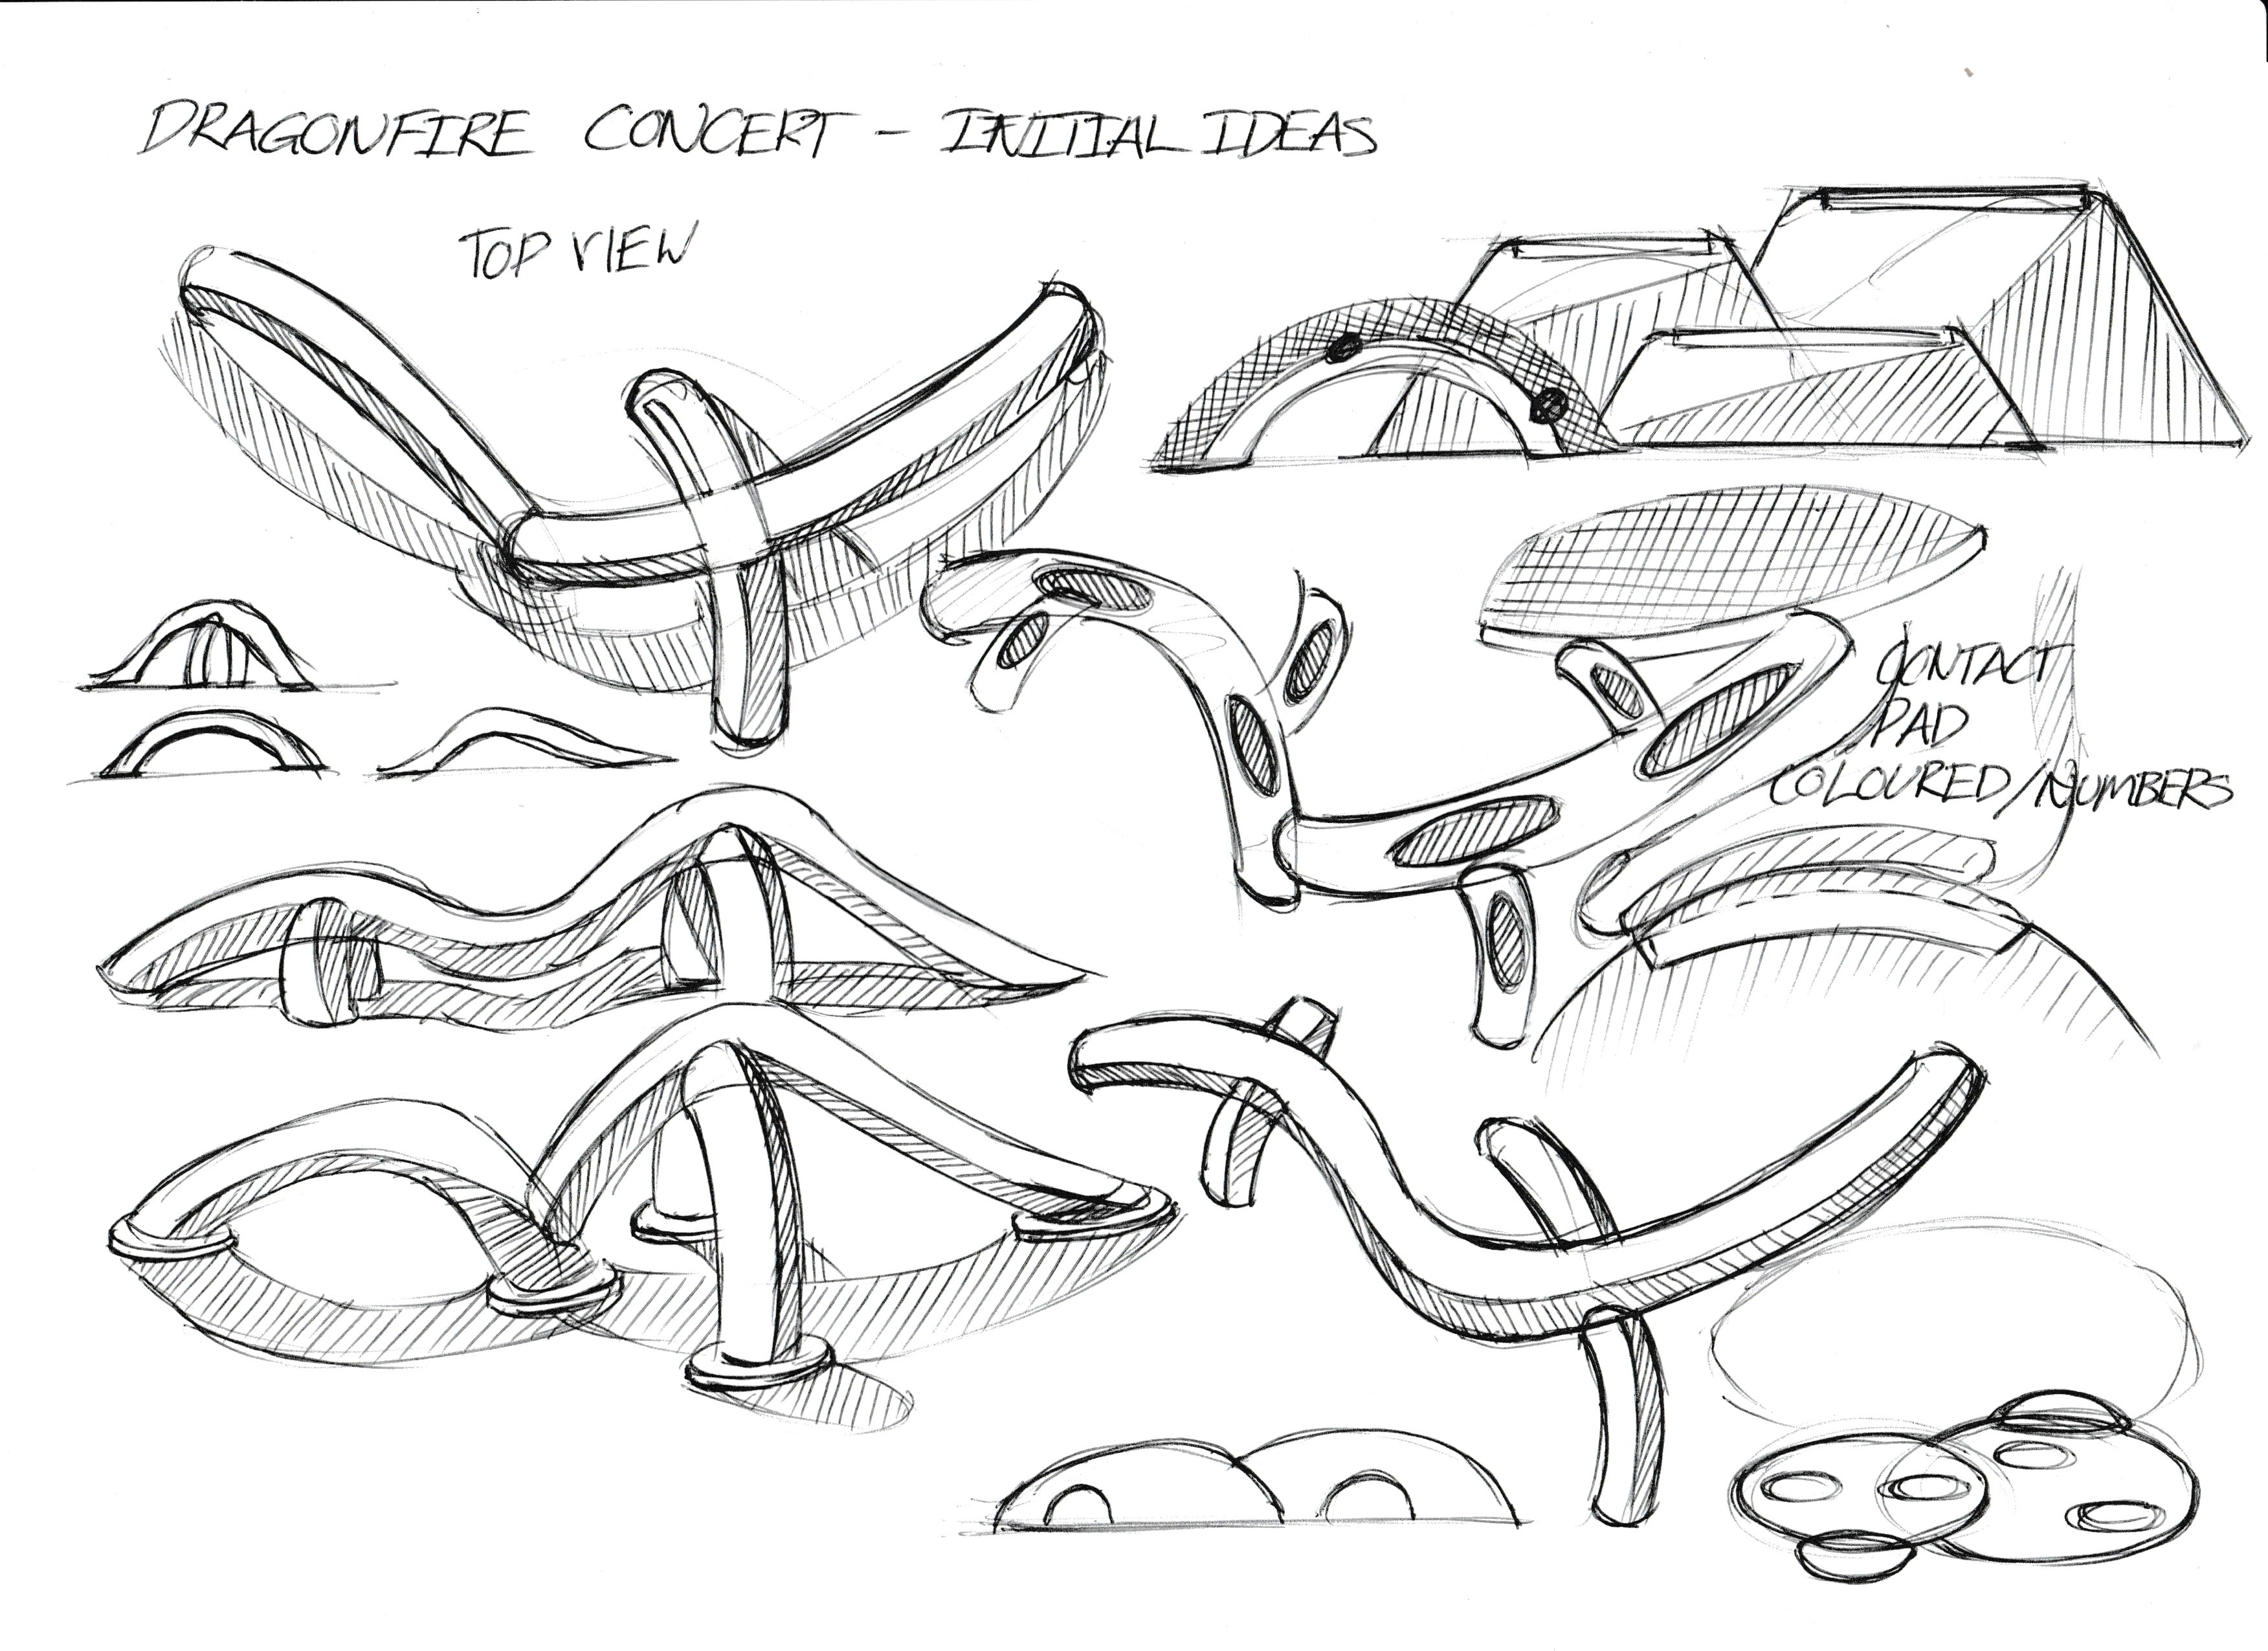 DRAGONFIRE CONCERT - INITIAL IDEAS
TOP VIEW
CONTACT
PAD
COLOURED/NUMBERS